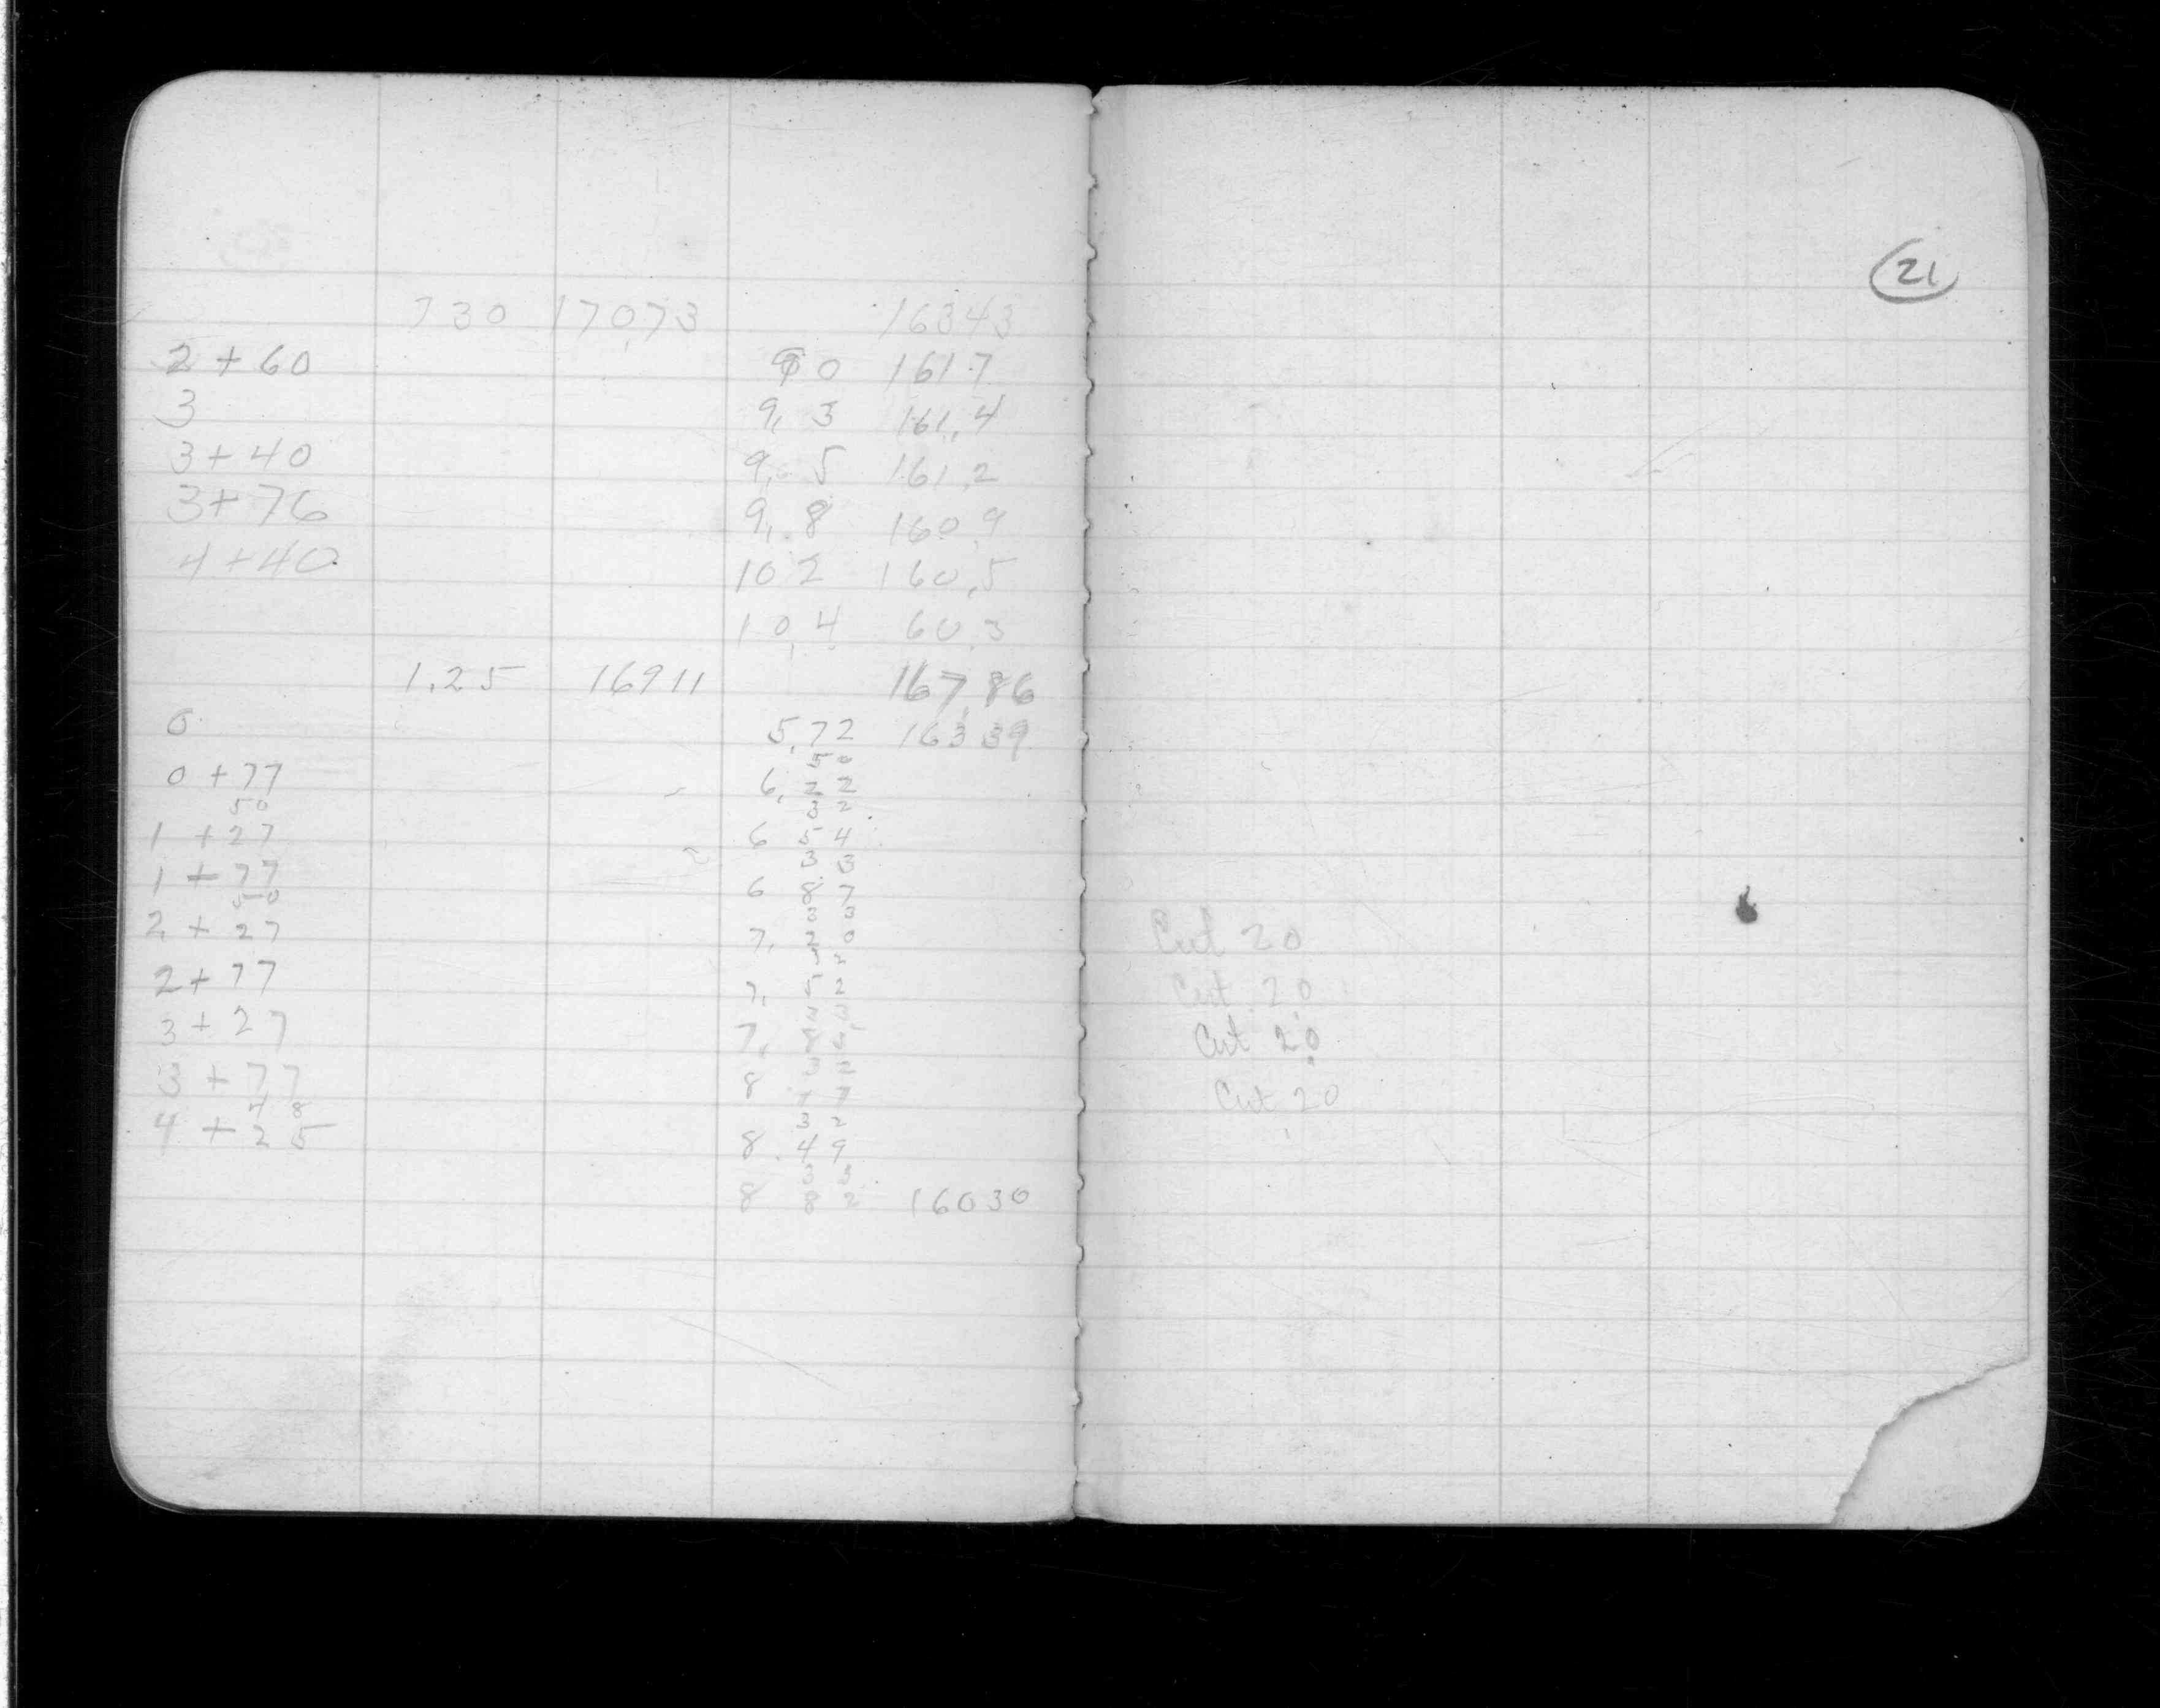 730 17073 16343
2+60 90 1617
3 9,3 161,4
3+40 9,5 161,2
3+76 9,8 160,9
4+40 102 160,5
10,4 60,3
1.25 16911 167,86
0 5,72 16339
50
0+77 6,22
50 32
1+27 6 54
33
1+77 6 87
50 33
2+27 7,20
2+77 7,52
3+27 7,
32
3+77 8 17
48 32
4+25 8.49
33
8 82 16030
21
Cut 20
Cut 20
Cut 20
Cut 20